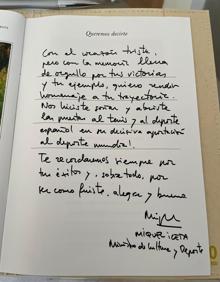 Queremos decirte
Con el corazón triste,
pero con la memoria llena
de orgullo por tus victorias
y tu ejemplo, quiero rendir
homenaje a tu trayectoria.
Nos hiciste soñar y abriste
las puertas al tenis y al deporte
español en su decisiva aportación
al deporte mundial.
Te recordaremos siempre por
tus éxitos y, sobre todo, por
ser como fuiste, alegre y bueno
MIQUEL ICETA
Ministro de Cultura y Deporte